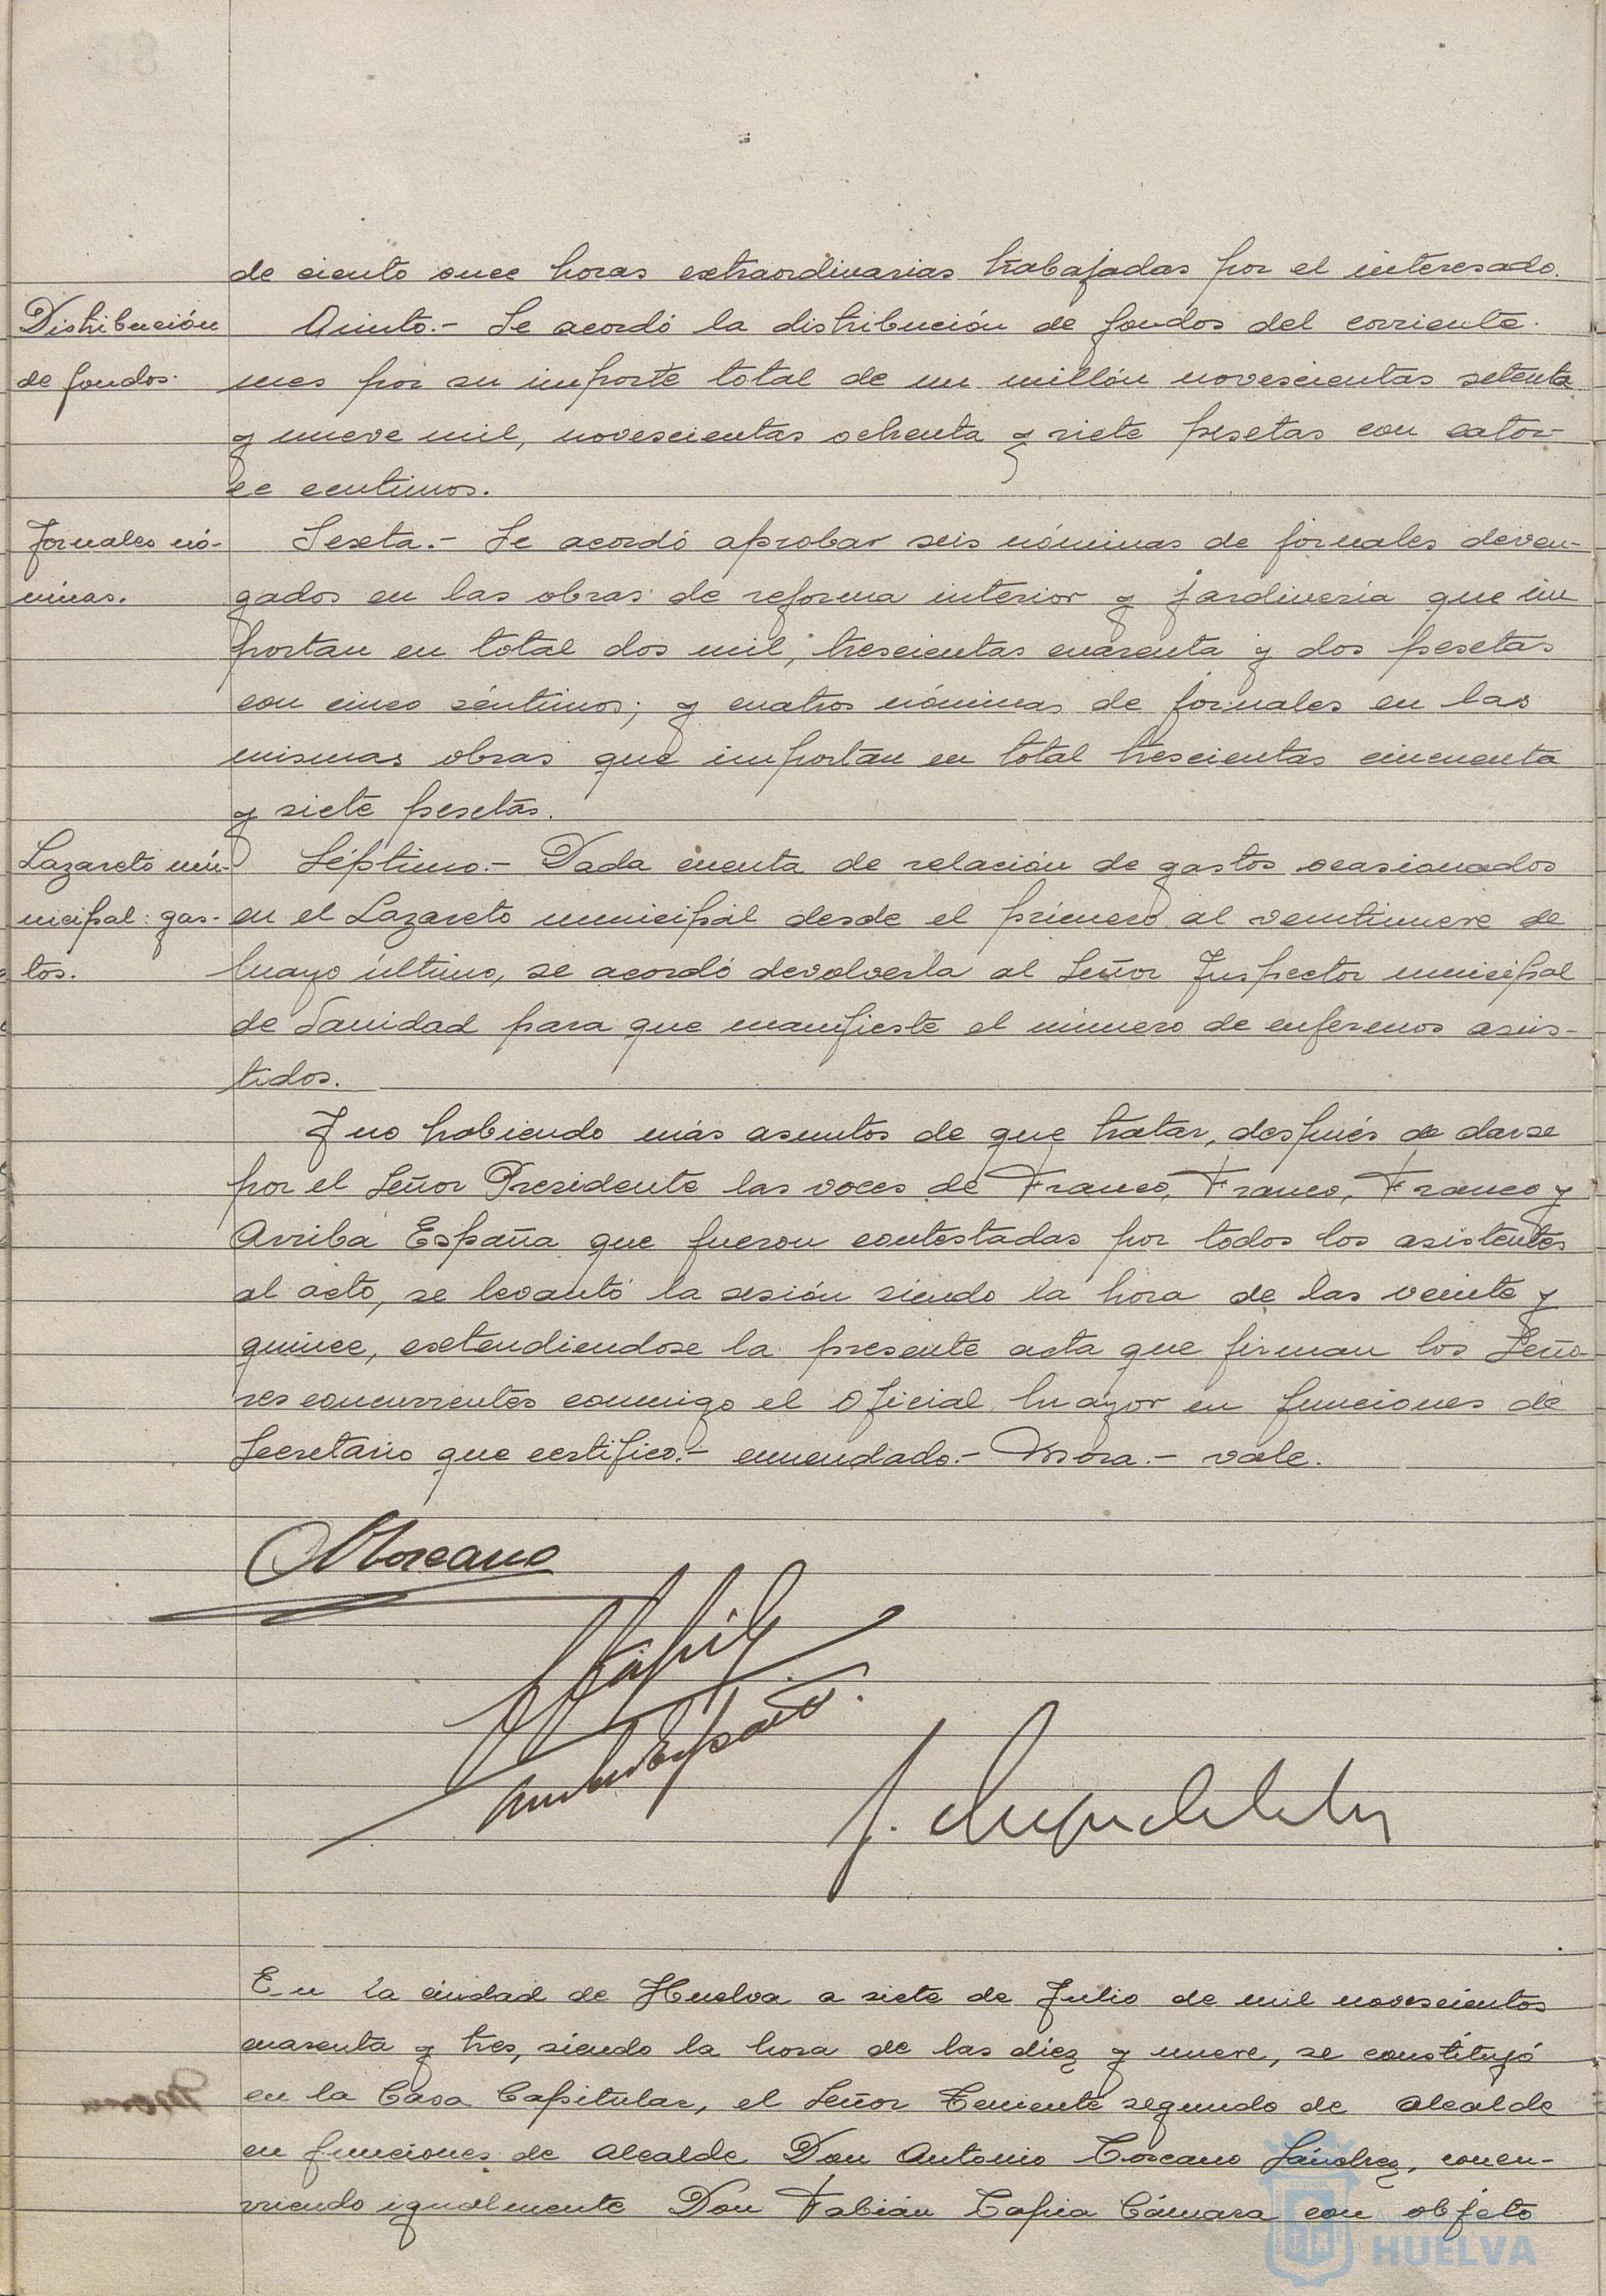 de ciento once horas extraordinarias trabajadas por el interesado.
Distribución
de fondos.
Quinto.- Se acordó la distribución de fondos del corriente
mes por su importe total de un millón novescientas setenta
y nueve mil, novescientas ochenta y siete pesetas con cator-
ce centimos.
Jornales nó-
minas.
Sexta.- Se acordó aprobar seis nóminas de jornales deven-
gados en las obras de reforma interior y jardinería que im
portan en total dos mil, trescientas cuarenta y dos pesetas
con cinco céntimos; y cuatros nóminas de jornales en las
mismas obras que importan en total trescientas cincuenta
y siete pesetas.
Lazareto mu-
nicipal: gas-
tos.
Séptimo.- Dada cuenta de relación de gastos ocasionados
en el Lazareto municipal desde el primero al ventinueve de
Mayo último, se acordó devolverla al Señor Inspector municipal
de Sanidad para que manifieste el número de enfermos asis-
tidos.
Y no habiendo más asuntos de que tratar, después de darse
por el Señor Presidente las voces de Franco, Franco, Franco y
Arriba España que fueron contestadas por todos los asistentes
al acto, se levantó la sesión siendo la hora de las veinte y
quince, extendiendose la presente acta que firman los Seño-
res concurrentes conmigo el Oficial Mayor en funciones de
Secretario que certifico.- enmendado.- Mora.- vale.
A Toscano
F Tapia
En la ciudad de Huelva a siete de Julio de mil novescientos
cuarenta y tres, siendo la hora de las diez y nueve, se constituyó
en la Casa Capitular, el Señor Teniente segundo de Alcalde
en funciones de Alcalde Don Antonio Toscano Sánchez, concu-
rriendo igualmente Don Fabián Tapia Cámara con objeto
HUELVA